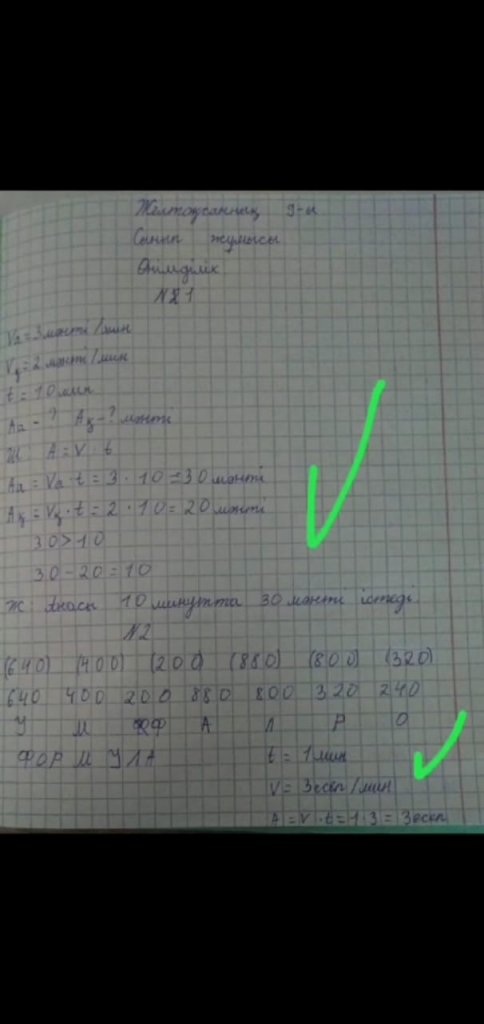 Желтоқсанның 9-ы
Сынып жұмысы
Өнімділік
№1
Vа = 3 мәнті/мин
Vқ = 2 мәнті/мин
t = 10 мин
Aа - ? Aқ - ? мәнті
Ш: A = V · t
Aа = Vа · t = 3 · 10 = 30 мәнті
Aқ = Vқ · t = 2 · 10 = 20 мәнті
30 > 10
30 - 20 = 10
Ж: Анасы 10 минутта 30 мәнті істеді.
№2
(640) (400) (200) (880) (800) (320)
640 400 200 880 800 320 240
У М Ф А Л Р О
ФОРМУЛА t = 1 мин
V = 3 ескп/мин
A = V · t = 1 · 3 = 3 ескп